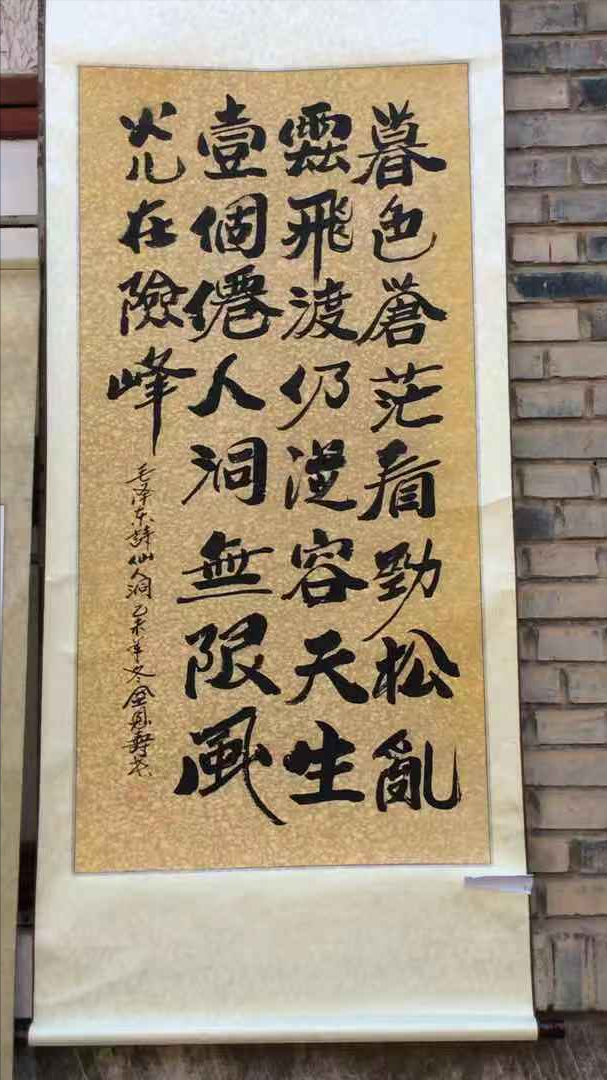 暮色蒼茫看勁松亂
雲飛渡仍從容天生
壹個僊人洞無限風
灮在險峰
毛泽东詩仙人洞乙未年冬金恩壽书